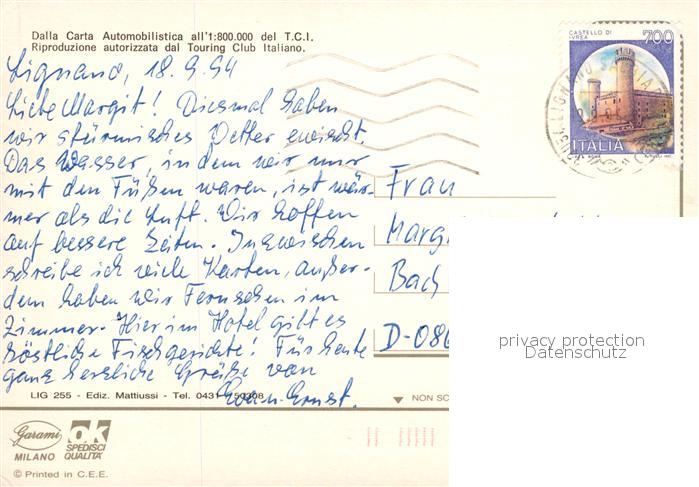 Dalla Carta Automobilistica all'1:800.000 del T.C.I.
Riproduzione autorizzata dal Touring Club Italiano.
Lignano, 18.9.94
Liebe Margit! Diesmal haben
wir stürmisches Wetter erwischt.
Das Wasser, in dem wir nur
mit den Füßen waren, ist wär-
mer als die Luft. Wir hoffen
auf bessere Zeiten. Inzwischen
schreibe ich viele Karten, außer-
dem haben wir Fernsehen im
Zimmer. Hier im Hotel gibt es
köstliche Fischgerichte! Für heute
ganz herzliche Grüße von
Ernst.
LIG 255 - Ediz. Mattiussi - Tel. 0431
Garami
MILANO
ok
SPEDISCI
QUALITA'
© Printed in C.E.E.
CASTELLO DI
IVREA
700
ITALIA
LIGNANO
Frau
Marg
Bach
D-086
NON SC
privacy protection
Datenschutz